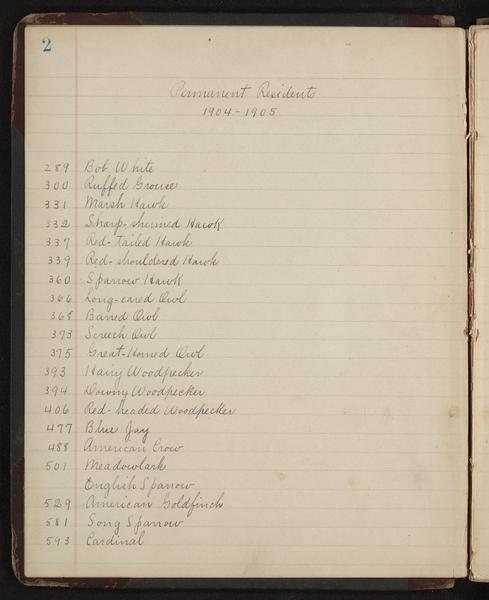 2
Permanent Residents
1904-1905
289 Bob White
300 Ruffed Grouse
331 Marsh Hawk
332 Sharp-shinned Hawk
337 Red-tailed Hawk
339 Red-shouldered Hawk
360 Sparrow Hawk
366 Long-eared Owl
368 Barred Owl
393 Screech Owl
375 Great-Horned Owl
393 Hairy Woodpecker
394 Downy Woodpecker
406 Red-headed Woodpecker
477 Blue Jay
488 American Crow
501 Meadowlark
English Sparrow
529 American Goldfinch
581 Song Sparrow
593 Cardinal